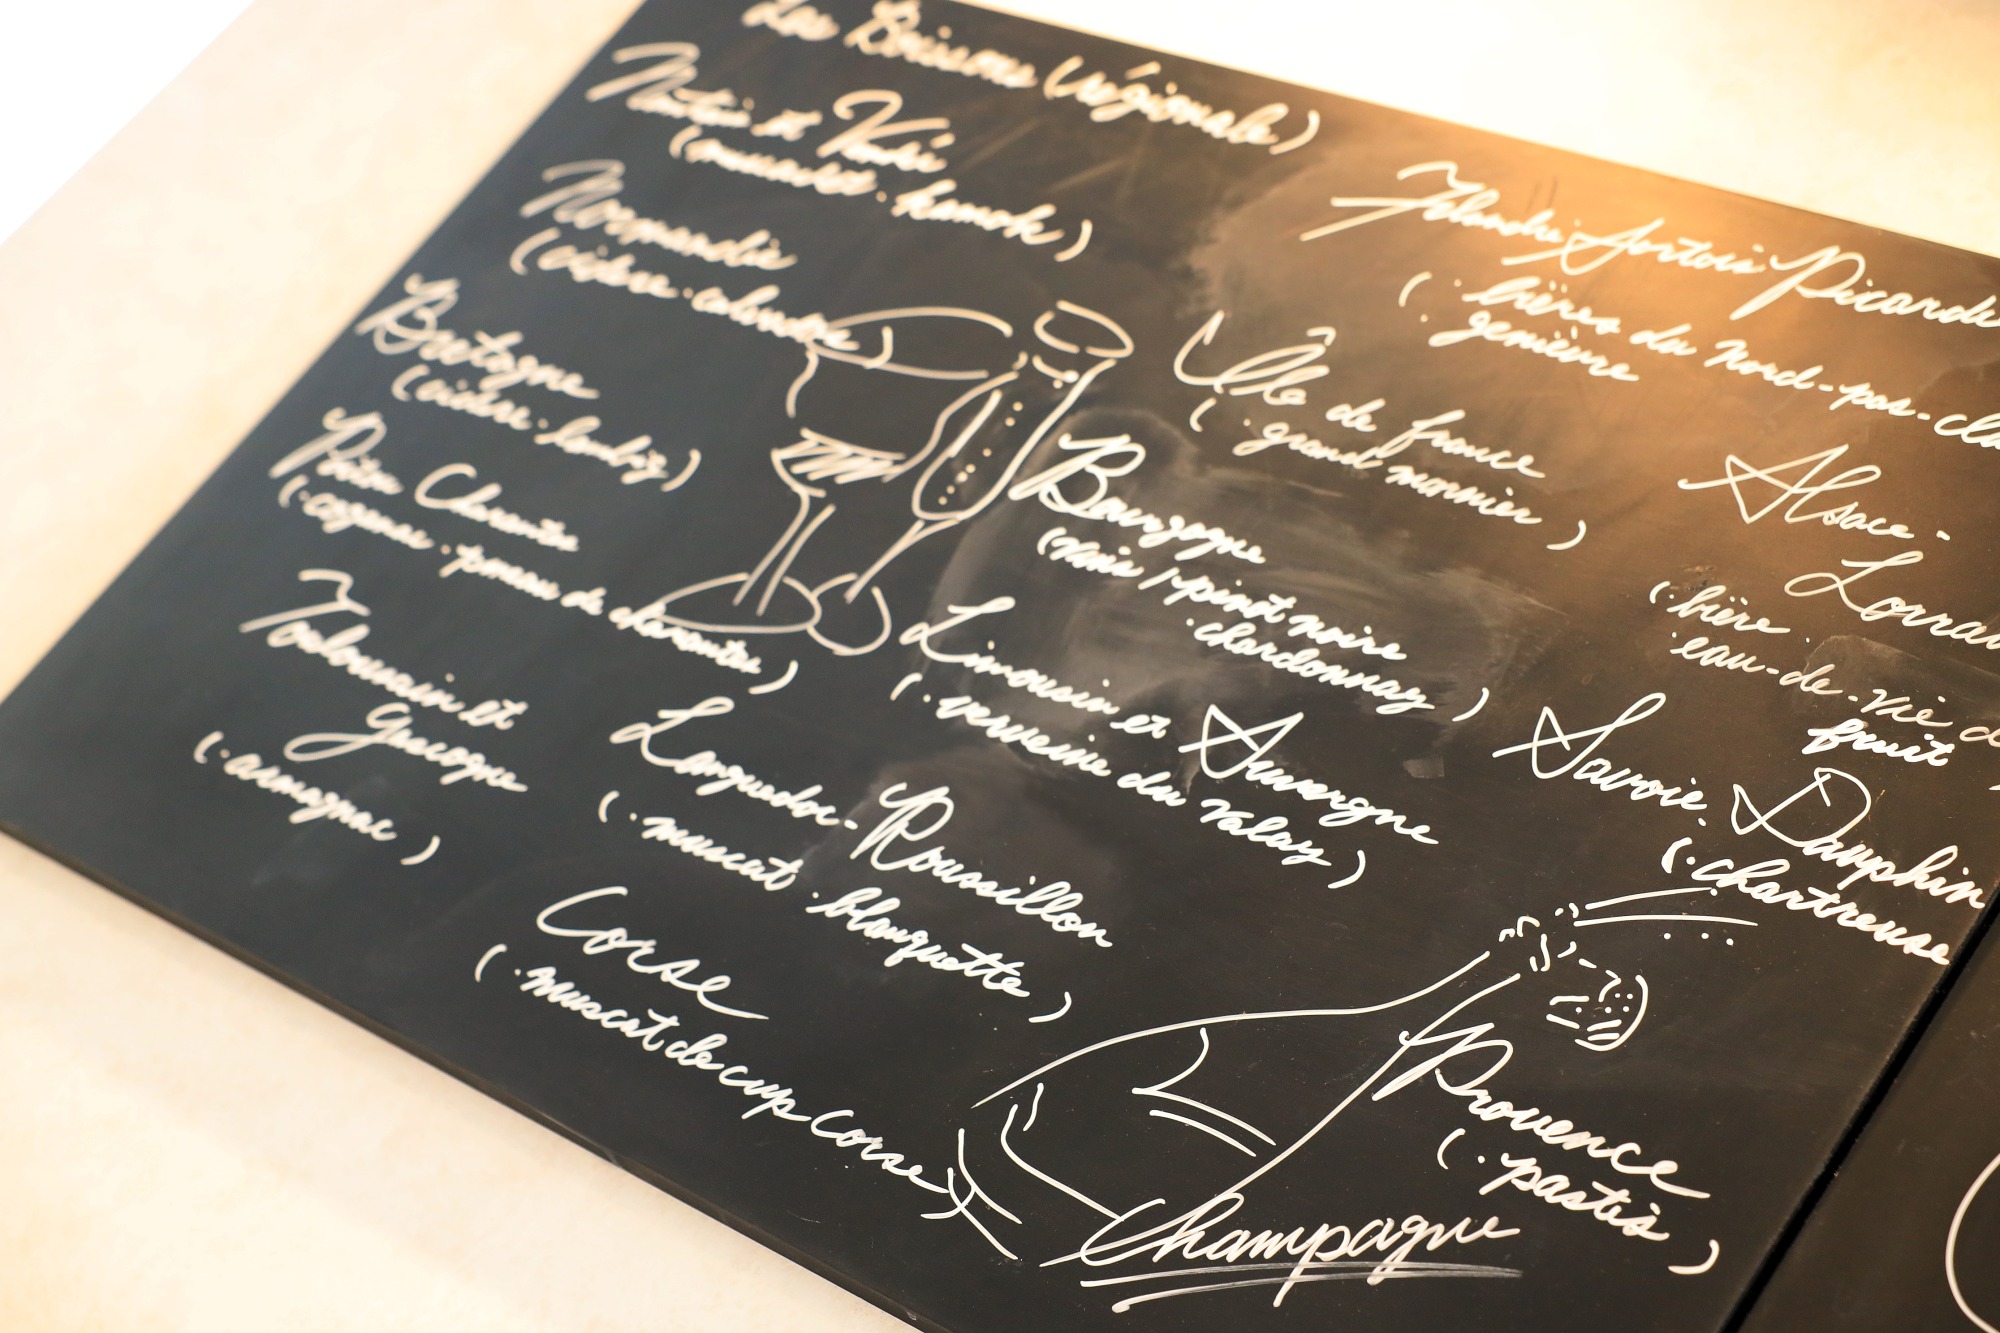 Les Boissons (régionale)
Nantais et Vendée
(muscadet · kamok)
Normandie
(cidre · calvados)
Bretagne
(cidre · lambig)
Poitou Charentes
(· cognac · pineau de charentes)
Toulousain et
Gascogne
(· armagnac)
Languedoc-
Roussillon
(· muscat · blanquette)
Corse
(· muscat de cup Corse)
Flandre Artois Picardie
(· bières du nord-pas-
· genièvre
Île de france
(· grand mornier)
Bourgogne
(vin / · pinot noire
· chardonnay)
Limousin et Auvergne
(· verveine du Valay)
Alsace-
(· bière ·
eau-de-vie
fruit
Savoie ·
(· chartreuse
Provence
(· pastis)
Champagne